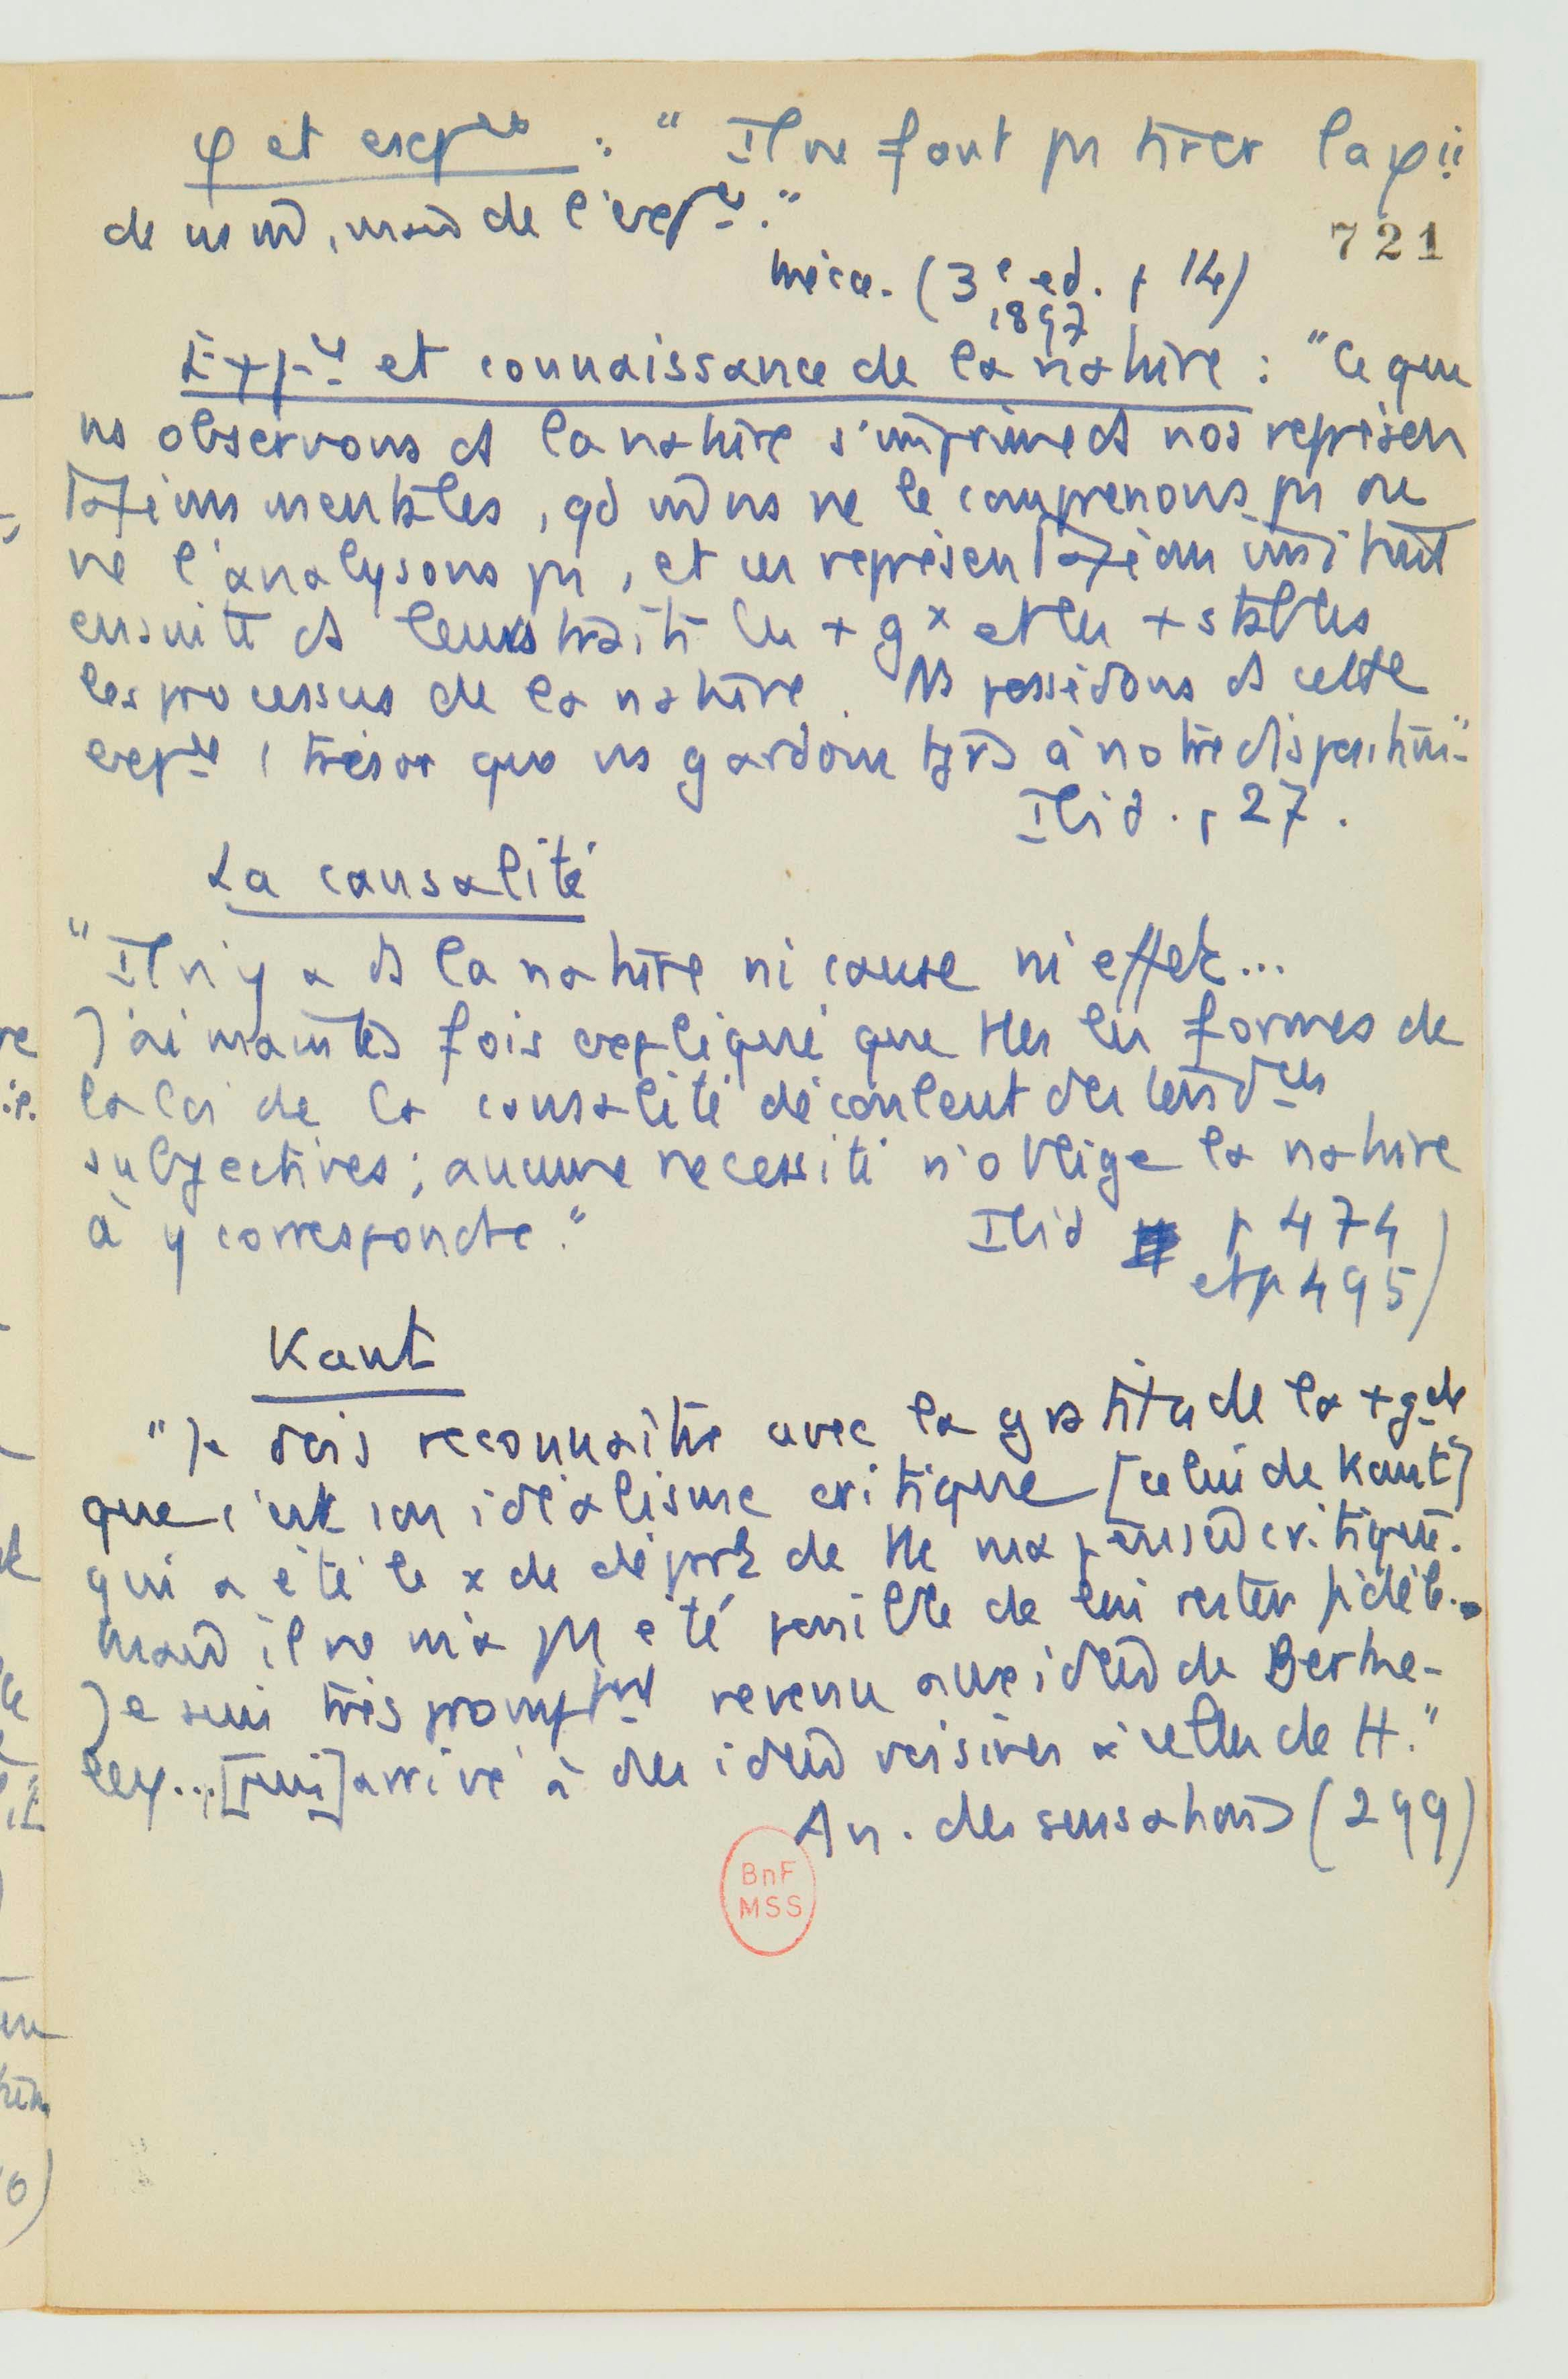 φ et expce : " Il ne faut pas tirer la φie
de ns m̂, mais de l'expce."
721
Méca. (3e ed. p 14)
1897
Expce et connaissance de la nature : "Ce que
ns observons ds la nature s'imprime ds nos représen
tations mentales, qd m̂ ns ne le comprenons pas ou
ne l'analysons pas, et ces représentations imitent
ensuite ds leurs traits les + gx et les + stables
les processus de la nature. Ns possédons ds cette
expce 1 trésor que ns gardons tjrs à notre disposition"
Ibid. p 27.
La causalité
"Il n'y a ds la nature ni cause ni effet...
J'ai maintes fois expliqué que ttes les formes de
la loi de la causalité découlent des tendces
subjectives ; aucune nécessité n'oblige la nature
à y correspondre."
Ibid p 474
et p 495)
Kant
"Je dois reconnaître avec la gratitude la + gde
que c'est son idéalisme critique [celui de Kant]
qui a été le x de départ de tte ma pensée critique.
Mais il ne m'a pas été possible de lui rester fidèle..
Je suis très promptmt revenu aux idées de Berke-
ley...[puis] arrivé à des idées voisines à celles de H."
An. des sensations (299)
BnF
MSS